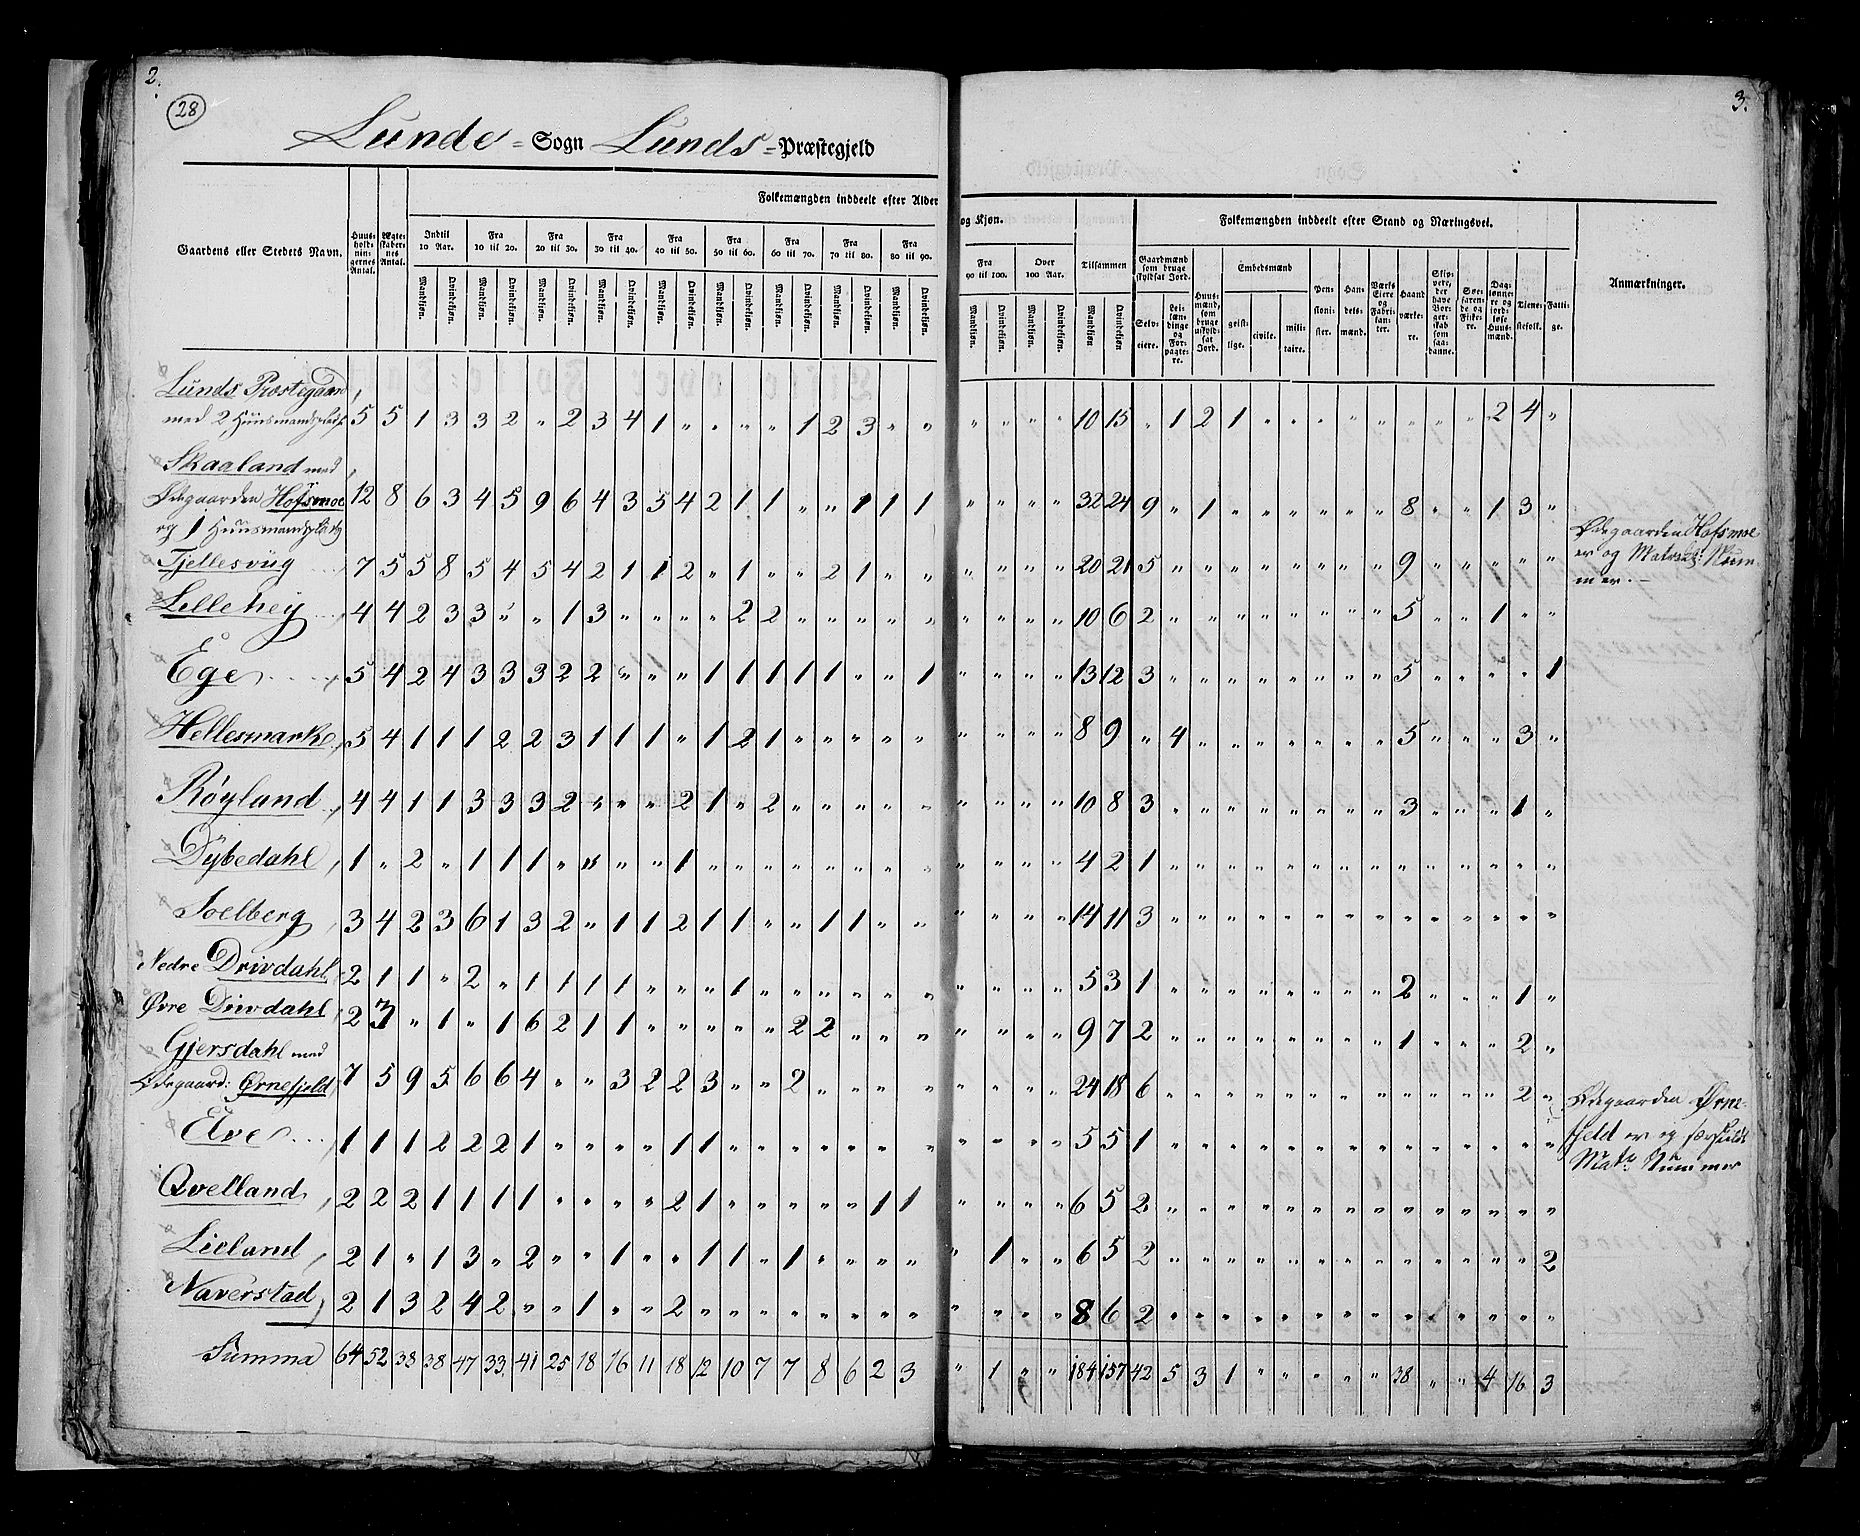 2.
3.
28
Lunde = Sogn Lunds = Præstegjeld
Folkemængden inddeelt efter Alder og Kjøn.
Folkemængden inddeelt efter Stand og Næringsvei.
Gaardens eller Stedets Navn.
Huus-hold-nin-gernes Antal.
Ægte-skaber-nes Antal.
Indtil 10 Aar.
Fra 10 til 20.
Fra 20 til 30.
Fra 30 til 40.
Fra 40 til 50.
Fra 50 til 60.
Fra 60 til 70.
Fra 70 til 80.
Fra 80 til 90.
Fra 90 til 100.
Over 100 Aar.
Tilsammen
Mandkjøn. Qvindekjøn.
Gaardmænd som bruge skyldsat Jord.
Selv-eiere.
Lei-læn-dinge og For-pagte-re.
Huus-mænd, som bruge uskyld-sat Jord.
Embedsmænd
geist-lige.
civile.
mili-taire.
Pen-sioni-ster.
Han-dels-mænd.
Værks Eiere og Fabri-kan-ter.
Haand værke-re.
Skip-pere, der have Bor-ger-skab som saa-danne.
Søe-faren-de og Fiske-re.
Dag-lønne-re og jord-løse Huus-mænd.
Tiene-stefolk.
Fatti-ge.
Anmærkninger.
Lunds Præstegaard
med 2 Huusmandspladse 5 5 1 3 3 2 " 2 3 4 1 " " " " 1 2 3 " " " " " " 10 15 " 1 2 1 " " " " " " " " 2 4 "
Skaaland med
Ødegaarden Hofsmoe 12 8 6 3 4 5 9 6 4 3 5 4 2 1 1 " " 1 1 1 " " " " 32 24 9 " 1 " " " " " " 8 " " 1 3 "
og 1 Huusmandsplads
Ødegaarden Hofsmoe
er og Matricul: Num
mer. –
Tjellesvüg 7 5 5 8 5 4 5 4 2 1 1 2 " 1 " " 2 1 " " " " " " 20 21 5 " " " " " " " " 9 " " " " "
Lellehey 4 4 2 3 3 " " 1 3 " " " " 2 2 " " " " " " " " " 10 6 2 " " " " " " " " 5 " " 1 " "
Ege 5 4 2 4 3 3 3 2 2 " " " 1 1 1 1 1 " " 1 " " " " 13 12 3 " " " " " " " " 5 " " " " 1
Hellesmark 5 4 1 1 1 2 2 3 1 1 1 " 1 2 1 " " " " " " " " " 8 9 " 4 " " " " " " " 5 " " " 3 "
Røyland 4 4 1 1 3 3 3 2 " " " 2 1 " 2 " " " " " " " " " 10 8 3 " " " " " " " " 3 " " " 1 "
Dybedahl 1 " 2 " 1 1 1 " " " " 1 " " " " " " " " " " " " 4 2 1 " " " " " " " " " " " " " "
Soelberg 3 4 2 3 6 1 3 2 " 1 1 2 1 1 " " 1 1 " " " " " " 14 11 3 " " " " " " " " " " " " " "
Nedre Drivdahl 2 1 1 " 2 " 1 1 1 1 " " " 1 " " " " " " " " " " 5 3 1 " " " " " " " " 2 " " " 1 "
Øvre Drivdahl 2 3 " 1 " 1 6 2 1 1 " " " " " 2 2 " " " " " " " 9 7 2 " " " " " " " " 1 " " " 2 "
Gjersdahl med
Ødegaard: Ørnefjeld 7 5 9 5 6 6 4 " " 3 2 2 3 " " 2 " " " " " " " " 24 18 6 " " " " " " " " " " " " 2 "
Ødegaarden Ørne-
fjeld er og
Matr Nummer
Elve 1 1 1 2 2 2 1 " " " " 1 1 " " " " " " " " " " " 5 5 1 " " " " " " " " " " " " " "
Qvelland 2 2 2 1 1 1 1 " " " " 2 1 " " " " " 1 1 " " " " 6 5 2 " " " " " " " " " " " " " "
Lieland 2 1 " 1 3 " 2 " " 1 " " 1 1 " 1 " " " " " 1 " " 6 5 2 " " " " " " " " " " " " " 2
Naverstad 2 1 3 2 4 2 " " 1 " " 2 " " " " " " " " " " " " 8 6 2 " " " " " " " " " " " " " "
Summa 64 52 38 38 47 33 41 25 18 16 11 18 12 10 7 7 8 6 2 3 " 1 " " 184 157 42 5 3 1 " " " " " 38 " " 4 16 3